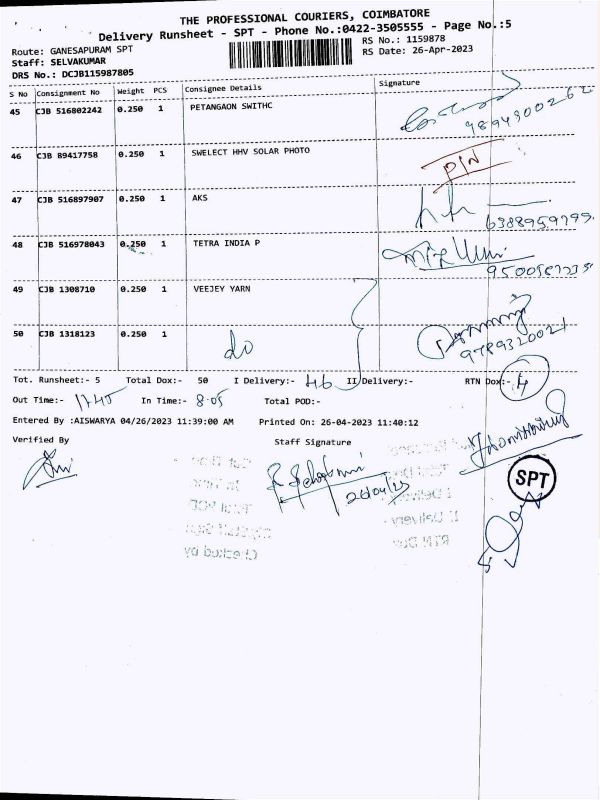 THE PROFESSIONAL COURIERS, COIMBATORE
Delivery Runsheet - SPT - Phone No.:0422-3505555 - Page No.:5
Route: GANESAPURAM SPT
RS No.: 1159878
Staff: SELVAKUMAR
RS Date: 26-Apr-2023
DRS No.: DCJB115987805
S No Consignment No Weight PCS Consignee Details Signature
45 CJB 516802242 0.250 1 PETANGAON SWITHC
46 CJB 89417758 0.250 1 SWELECT HHV SOLAR PHOTO
PIN
47 CJB 516897907 0.250 1 AKS
48 CJB 516978043 0.250 1 TETRA INDIA P
49 CJB 1308710 0.250 1 VEEJEY YARN
50 CJB 1318123 0.250 1 do
9789320021
Tot. Runsheet:- 5 Total Dox:- 50 I Delivery:- 46 II Delivery:- RTN Dox:- 4
Out Time:- In Time:- 8.05 Total POD:-
Entered By :AISWARYA 04/26/2023 11:39:00 AM Printed On: 26-04-2023 11:40:12
Verified By Staff Signature
26/04/23
SPT